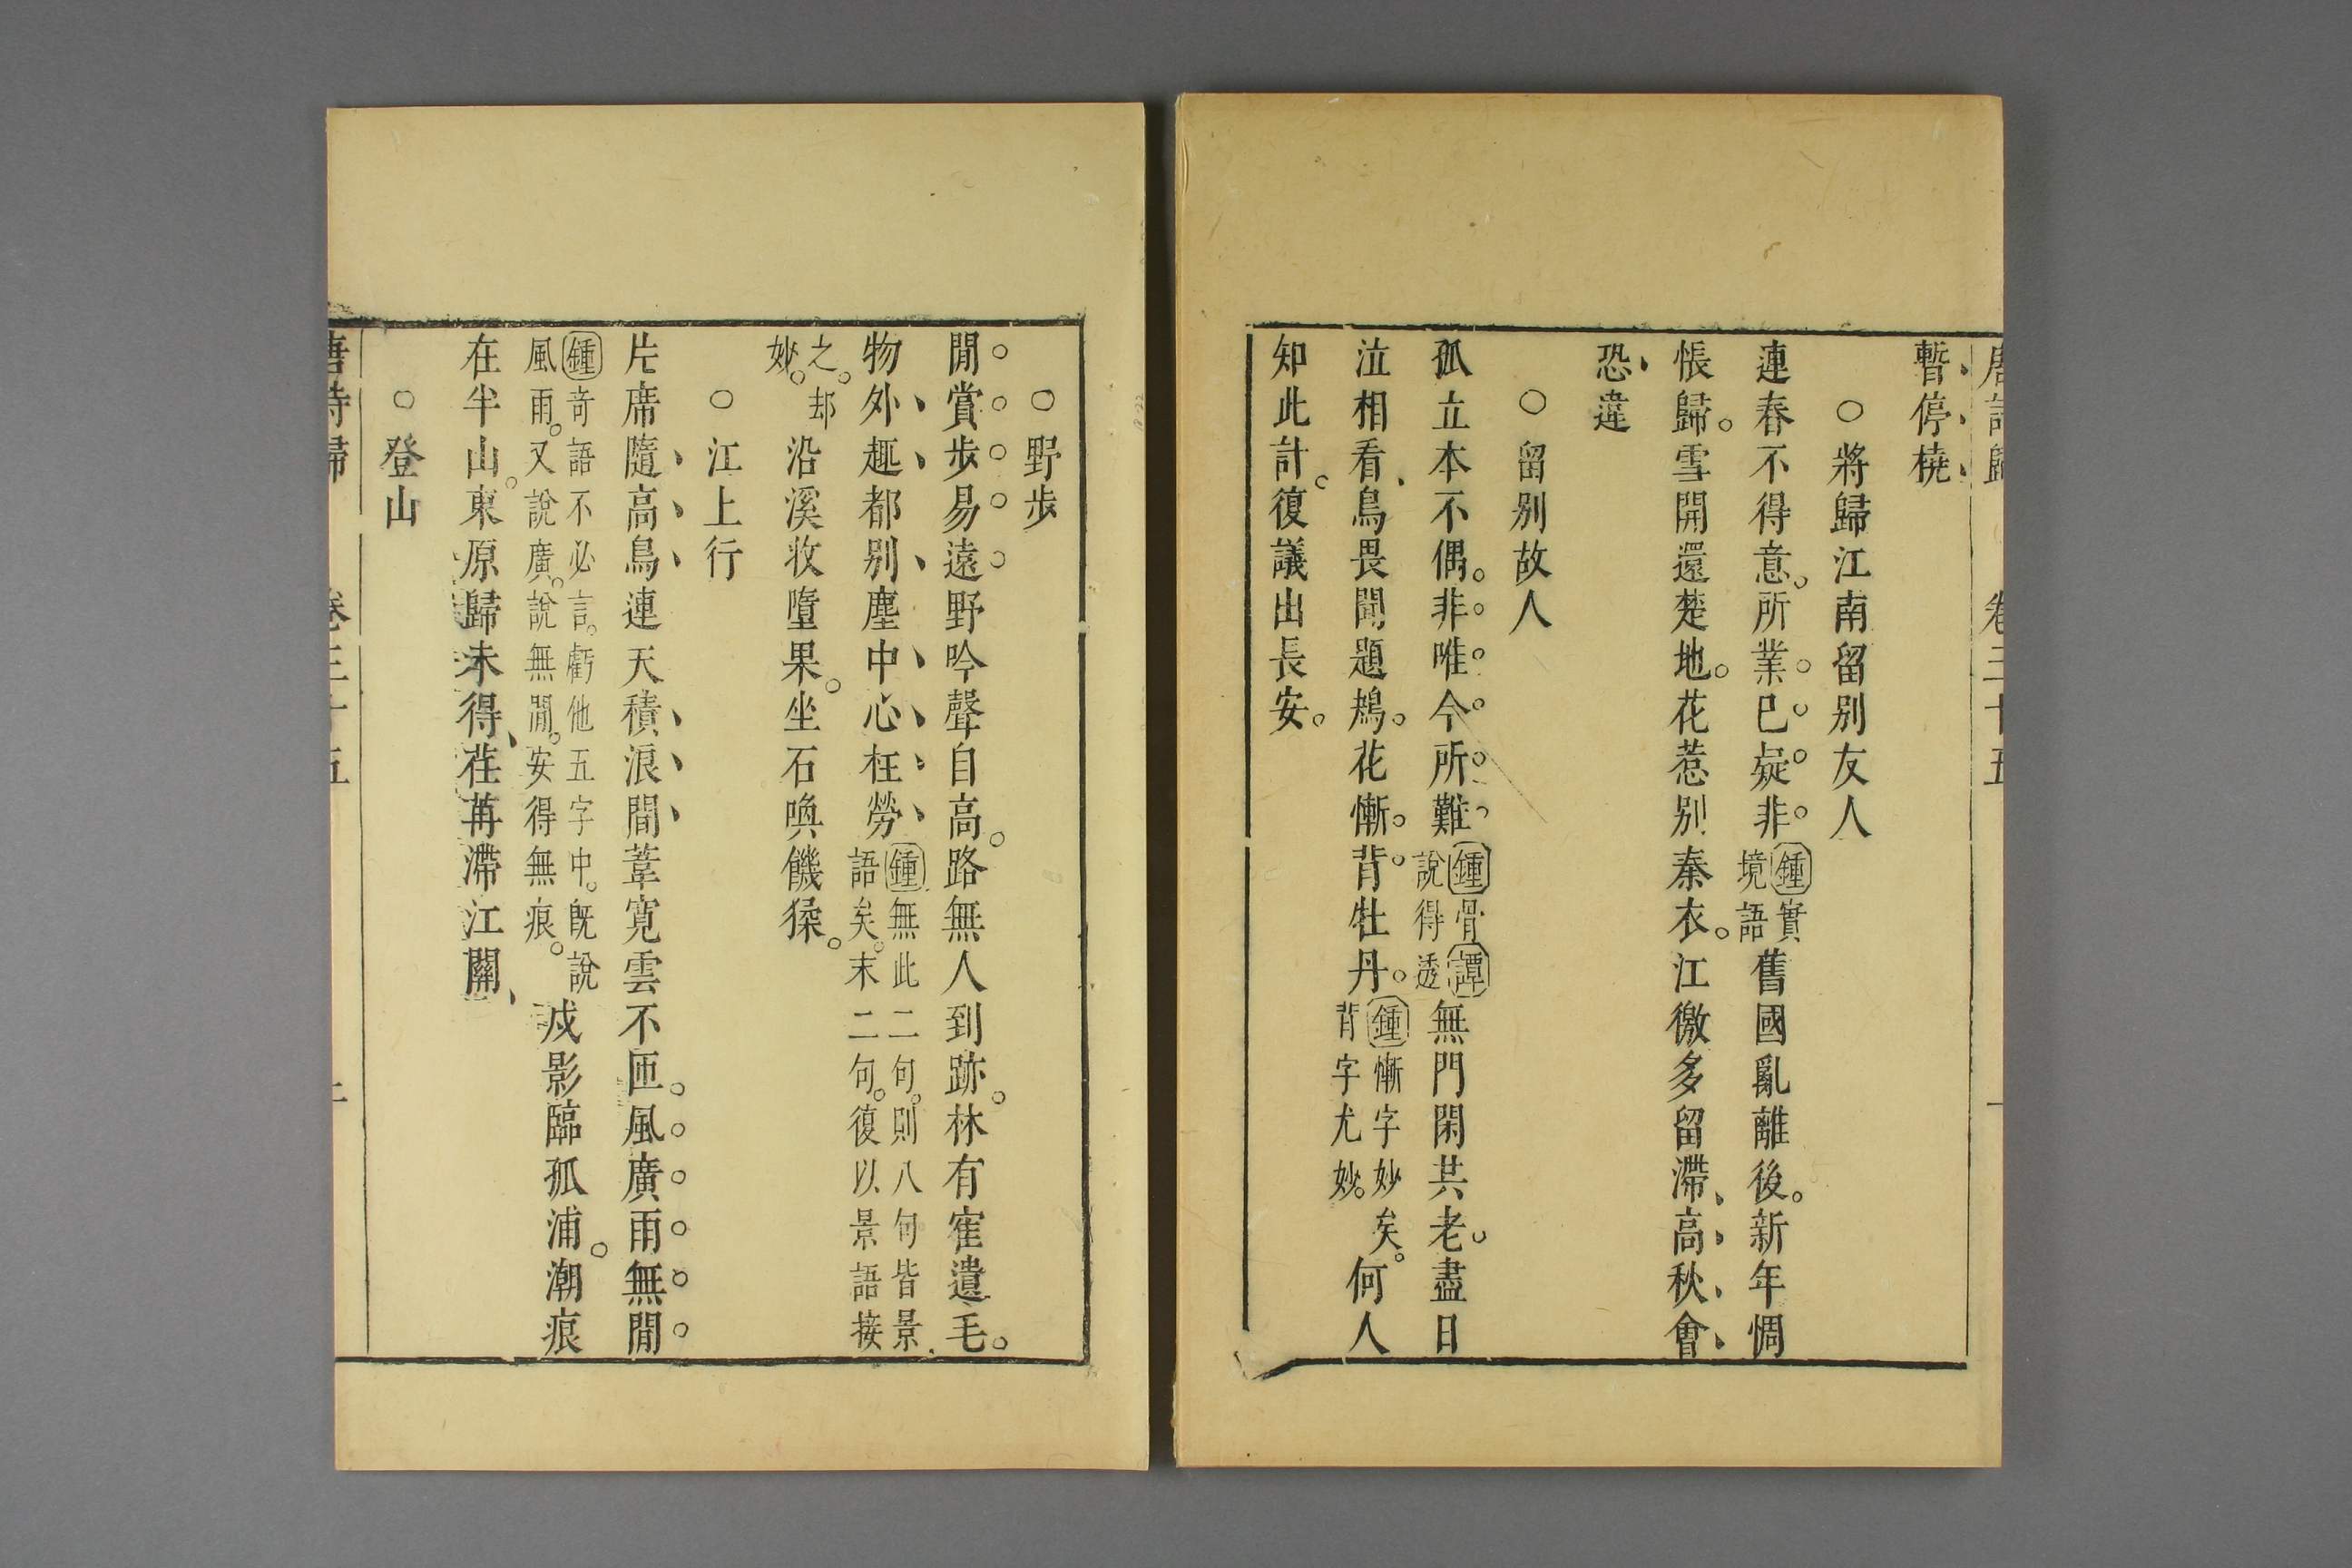 唐詩歸 卷三十五
暫停橈
○將歸江南留别友人
連春不得意。所業已疑非。鍾實境語舊國亂離後。新年惆
悵歸。雪開還楚地。花惹别秦衣。江徼多留滯、高秋、會
恐、違
○留别故人
孤立本不偶。非唯今所難鍾骨譚說得透無門閑共老。盡日
泣相看、鳥畏聞題鴂。花慚背牡丹。鍾慚字妙矣。背字尤妙。何人
知此計。復議出長安。
○野步
閒賞步易遠野吟聲自高。路無人到跡。林有隺遺毛。
物外趣都别塵中心枉勞鍾無此二句。則八句皆景語矣。末二句。復以景語接
之。却妙。沿溪收墮果。坐石喚饑猱。
○江上行
片席隨高鳥連天積浪間葦寛雲不匝。風廣雨無閒
鍾奇語不必言。虧他五字中。旣說風雨。又說廣。說無閒。安得無痕。戍影臨孤浦。潮痕
在半山。東原歸未得、荏苒滯江關、
○登山
唐詩歸 卷三十五